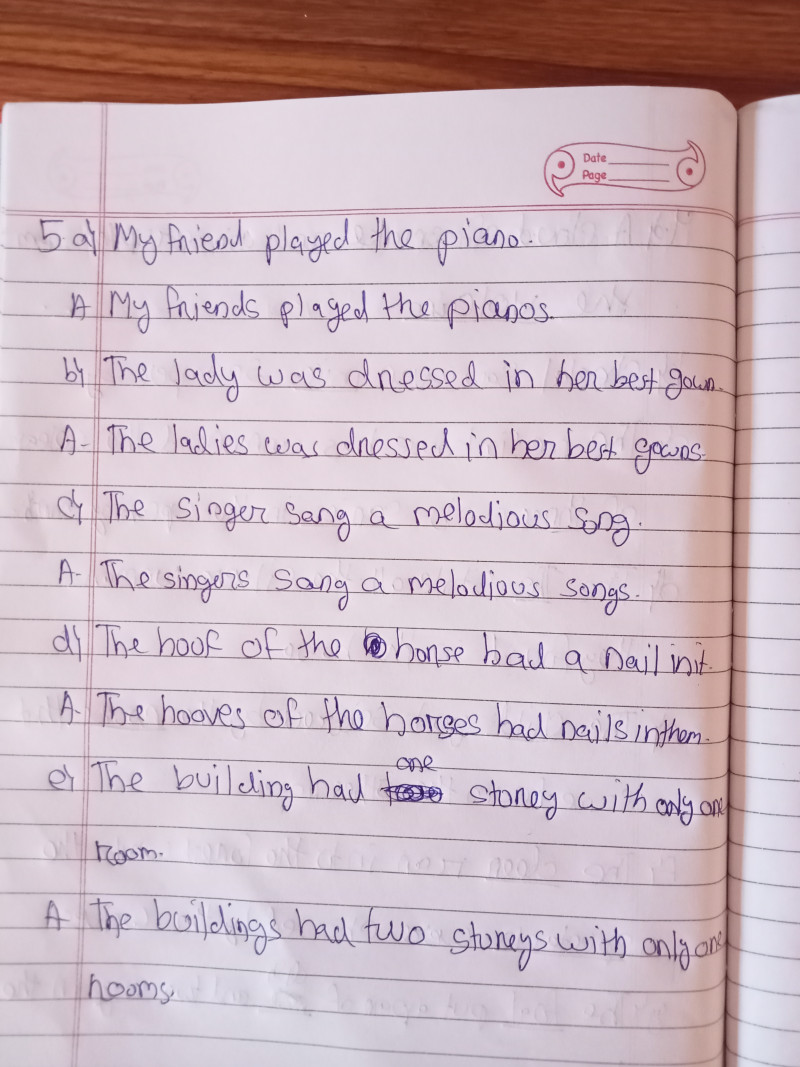 Date
Page
5 a) My friend played the piano.
A My friends played the pianos.
b) The lady was dressed in her best gown.
A- The ladies was dressed in her best gowns.
c) The singer sang a melodious song.
A- The singers sang a melodious songs.
d) The hoof of the horse had a nail in it.
A- The hooves of the horses had nails in them.
one
e) The building had storey with only one
room.
A The buildings had two storeys with only one
rooms.